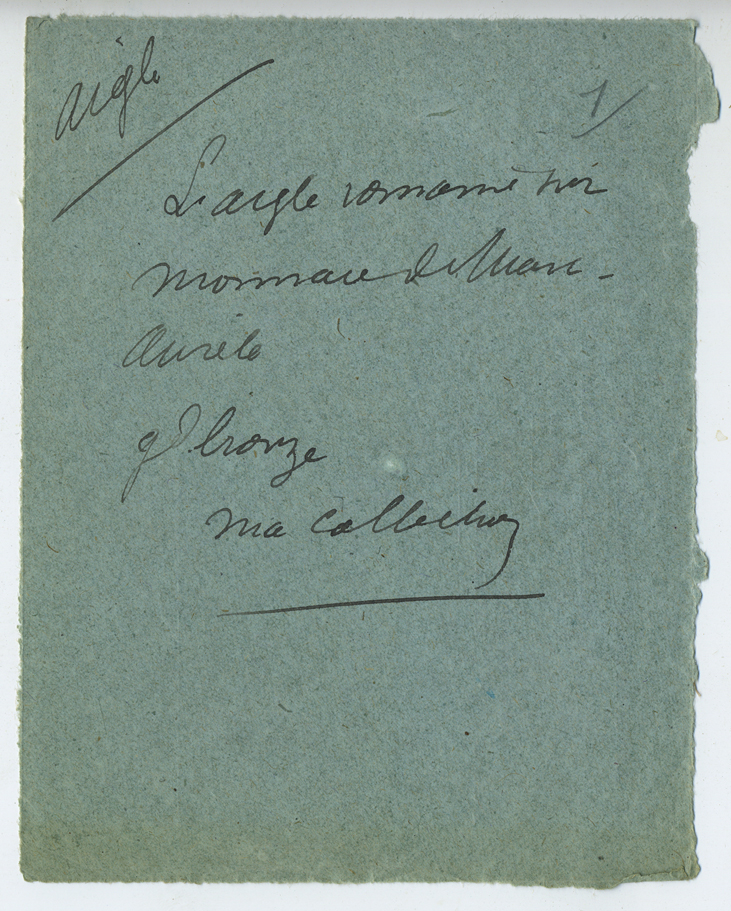 aigle
1/
L'aigle romaine sur
monnaie de Marc-
Aurèle
gd bronze
ma collection